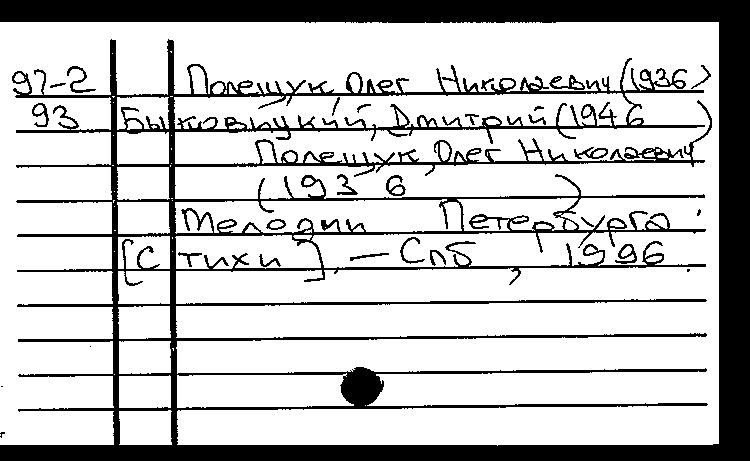 97-2 Полещук, Олег Николаевич (1936)
93 Быковицкий, Дмитрий (1946 )
Полещук, Олег Николаевич
(1936 )
Мелодии Петербурга :
[Стихи]. — Спб, 1996.